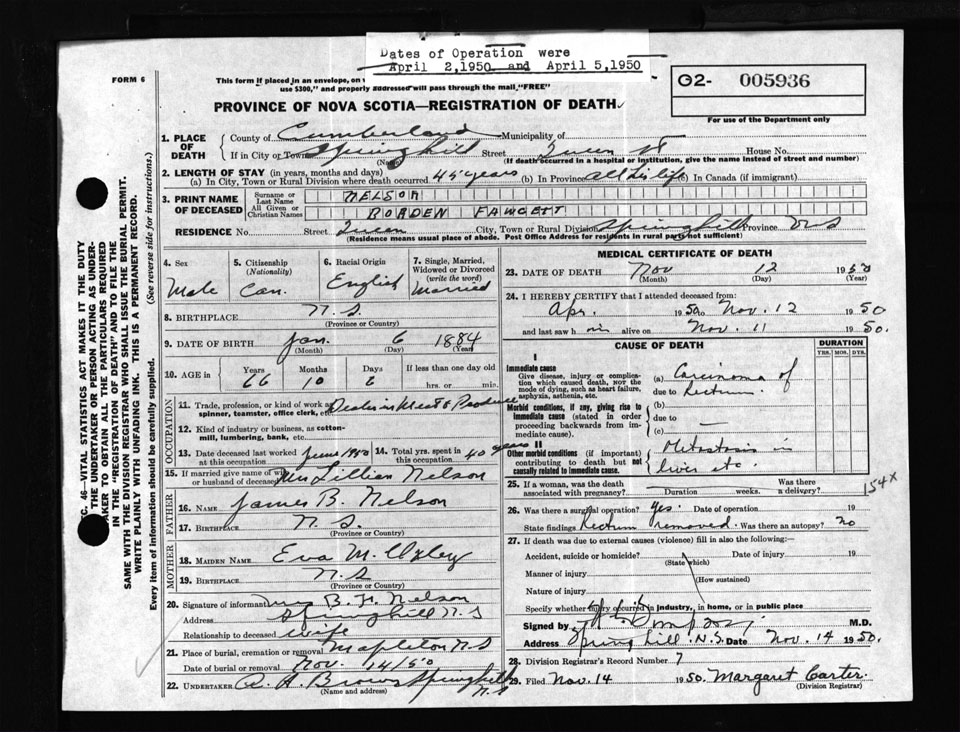 Dates of Operation were
April 2,1950 and April 5,1950
FORM 6
This form if placed in an envelope, on
use $300," and properly addressed will pass through the mail, "FREE"
G2- 005936
For use of the Department only
PROVINCE OF NOVA SCOTIA—REGISTRATION OF DEATH
1. PLACE OF DEATH
County of Cumberland Municipality of
If in City or Town Springhill Street Queen St House No.
(Name) (If death occurred in a hospital or institution, give the name instead of street and number)
2. LENGTH OF STAY (in years, months and days)
(a) In City, Town or Rural Division where death occurred 45 years (b) In Province all his life (c) In Canada (if immigrant)
3. PRINT NAME OF DECEASED
Surname or Last Name NELSON
All Given or Christian Names BORDEN FAWCETT
RESIDENCE No. Street Queen City, Town or Rural Division Springhill Province N.S
(Residence means usual place of abode. Post Office Address for residents in rural parts not sufficient)
4. Sex Male
5. Citizenship (Nationality) Can.
6. Racial Origin English
7. Single, Married, Widowed or Divorced (write the word) Married
8. BIRTHPLACE N.S.
(Province or Country)
9. DATE OF BIRTH Jan. 6 1884
(Month) (Day) (Year)
10. AGE in Years Months Days If less than one day old
66 10 6 hrs. or min.
OCCUPATION
11. Trade, profession, or kind of work as spinner, teamster, office clerk, etc. Dealer in Meat & Produce
12. Kind of industry or business, as cotton-mill, lumbering, bank, etc.
13. Date deceased last worked at this occupation June 1950
14. Total yrs. spent in this occupation 40 years
15. If married give name of wife or husband of deceased Mrs Lillian Nelson
FATHER
16. NAME James B. Nelson
17. BIRTHPLACE N.S.
(Province or Country)
MOTHER
18. MAIDEN NAME Eva M.
19. BIRTHPLACE N.S
(Province or Country)
20. Signature of informant Mrs B. F. Nelson
Address Springhill N.S
Relationship to deceased wife
21. Place of burial, cremation or removal Mapleton N.S
Date of burial or removal Nov. 14/50
22. UNDERTAKER A. A. Brown Springhill N.S
(Name and address)
MEDICAL CERTIFICATE OF DEATH
23. DATE OF DEATH Nov 12 1950
(Month) (Day) (Year)
24. I HEREBY CERTIFY that I attended deceased from:
Apr. 1950 to Nov. 12 1950
and last saw him alive on Nov. 11 1950.
CAUSE OF DEATH
DURATION
YRS. MOS. DYS.
I
Immediate cause
Give disease, injury or complication which caused death, NOT the mode of dying, such as heart failure, asphyxia, asthenia, etc.
(a) Carcinoma of
due to Rectum.
Morbid conditions, if any, giving rise to immediate cause (stated in order proceeding backwards from immediate cause).
(b)
due to
(c) —
II
Other morbid conditions (if important) contributing to death but not causally related to immediate cause.
Metastasis in
liver etc.
25. If a woman, was the death associated with pregnancy? Duration weeks. Was there a delivery?
154X
26. Was there a surgical operation? Yes. Date of operation 19
State findings Rectum removed. Was there an autopsy? No
27. If death was due to external causes (violence) fill in also the following:—
Accident, suicide or homicide? Date of injury 19
(State which)
Manner of injury
(How sustained)
Nature of injury
Specify whether injury occurred in industry, in home, or in public place
Signed by M.D.
Address Springhill. N.S. Date Nov. 14 1950.
28. Division Registrar's Record Number 7
29. Filed Nov. 14 1950. Margaret Carter.
(Division Registrar)
C. 46—VITAL STATISTICS ACT MAKES IT THE DUTY
THE UNDERTAKER OR PERSON ACTING AS UNDER-
TAKER TO OBTAIN ALL THE PARTICULARS REQUIRED
IN THE "REGISTRATION OF DEATH" AND TO FILE THE
SAME WITH THE DIVISION REGISTRAR WHO SHALL ISSUE THE BURIAL PERMIT.
WRITE PLAINLY WITH UNFADING INK. THIS IS A PERMANENT RECORD.
Every item of information should be carefully supplied. (See reverse side for instructions.)